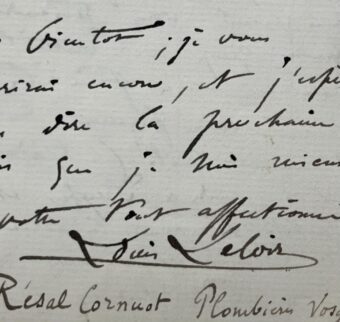 bientot ; je vous
rirai encore, et j'esp
dire la prochaine
que je suis mieux
votre tout affectionné
Louis Leloir
Résal Cornuot Plombières Vosg